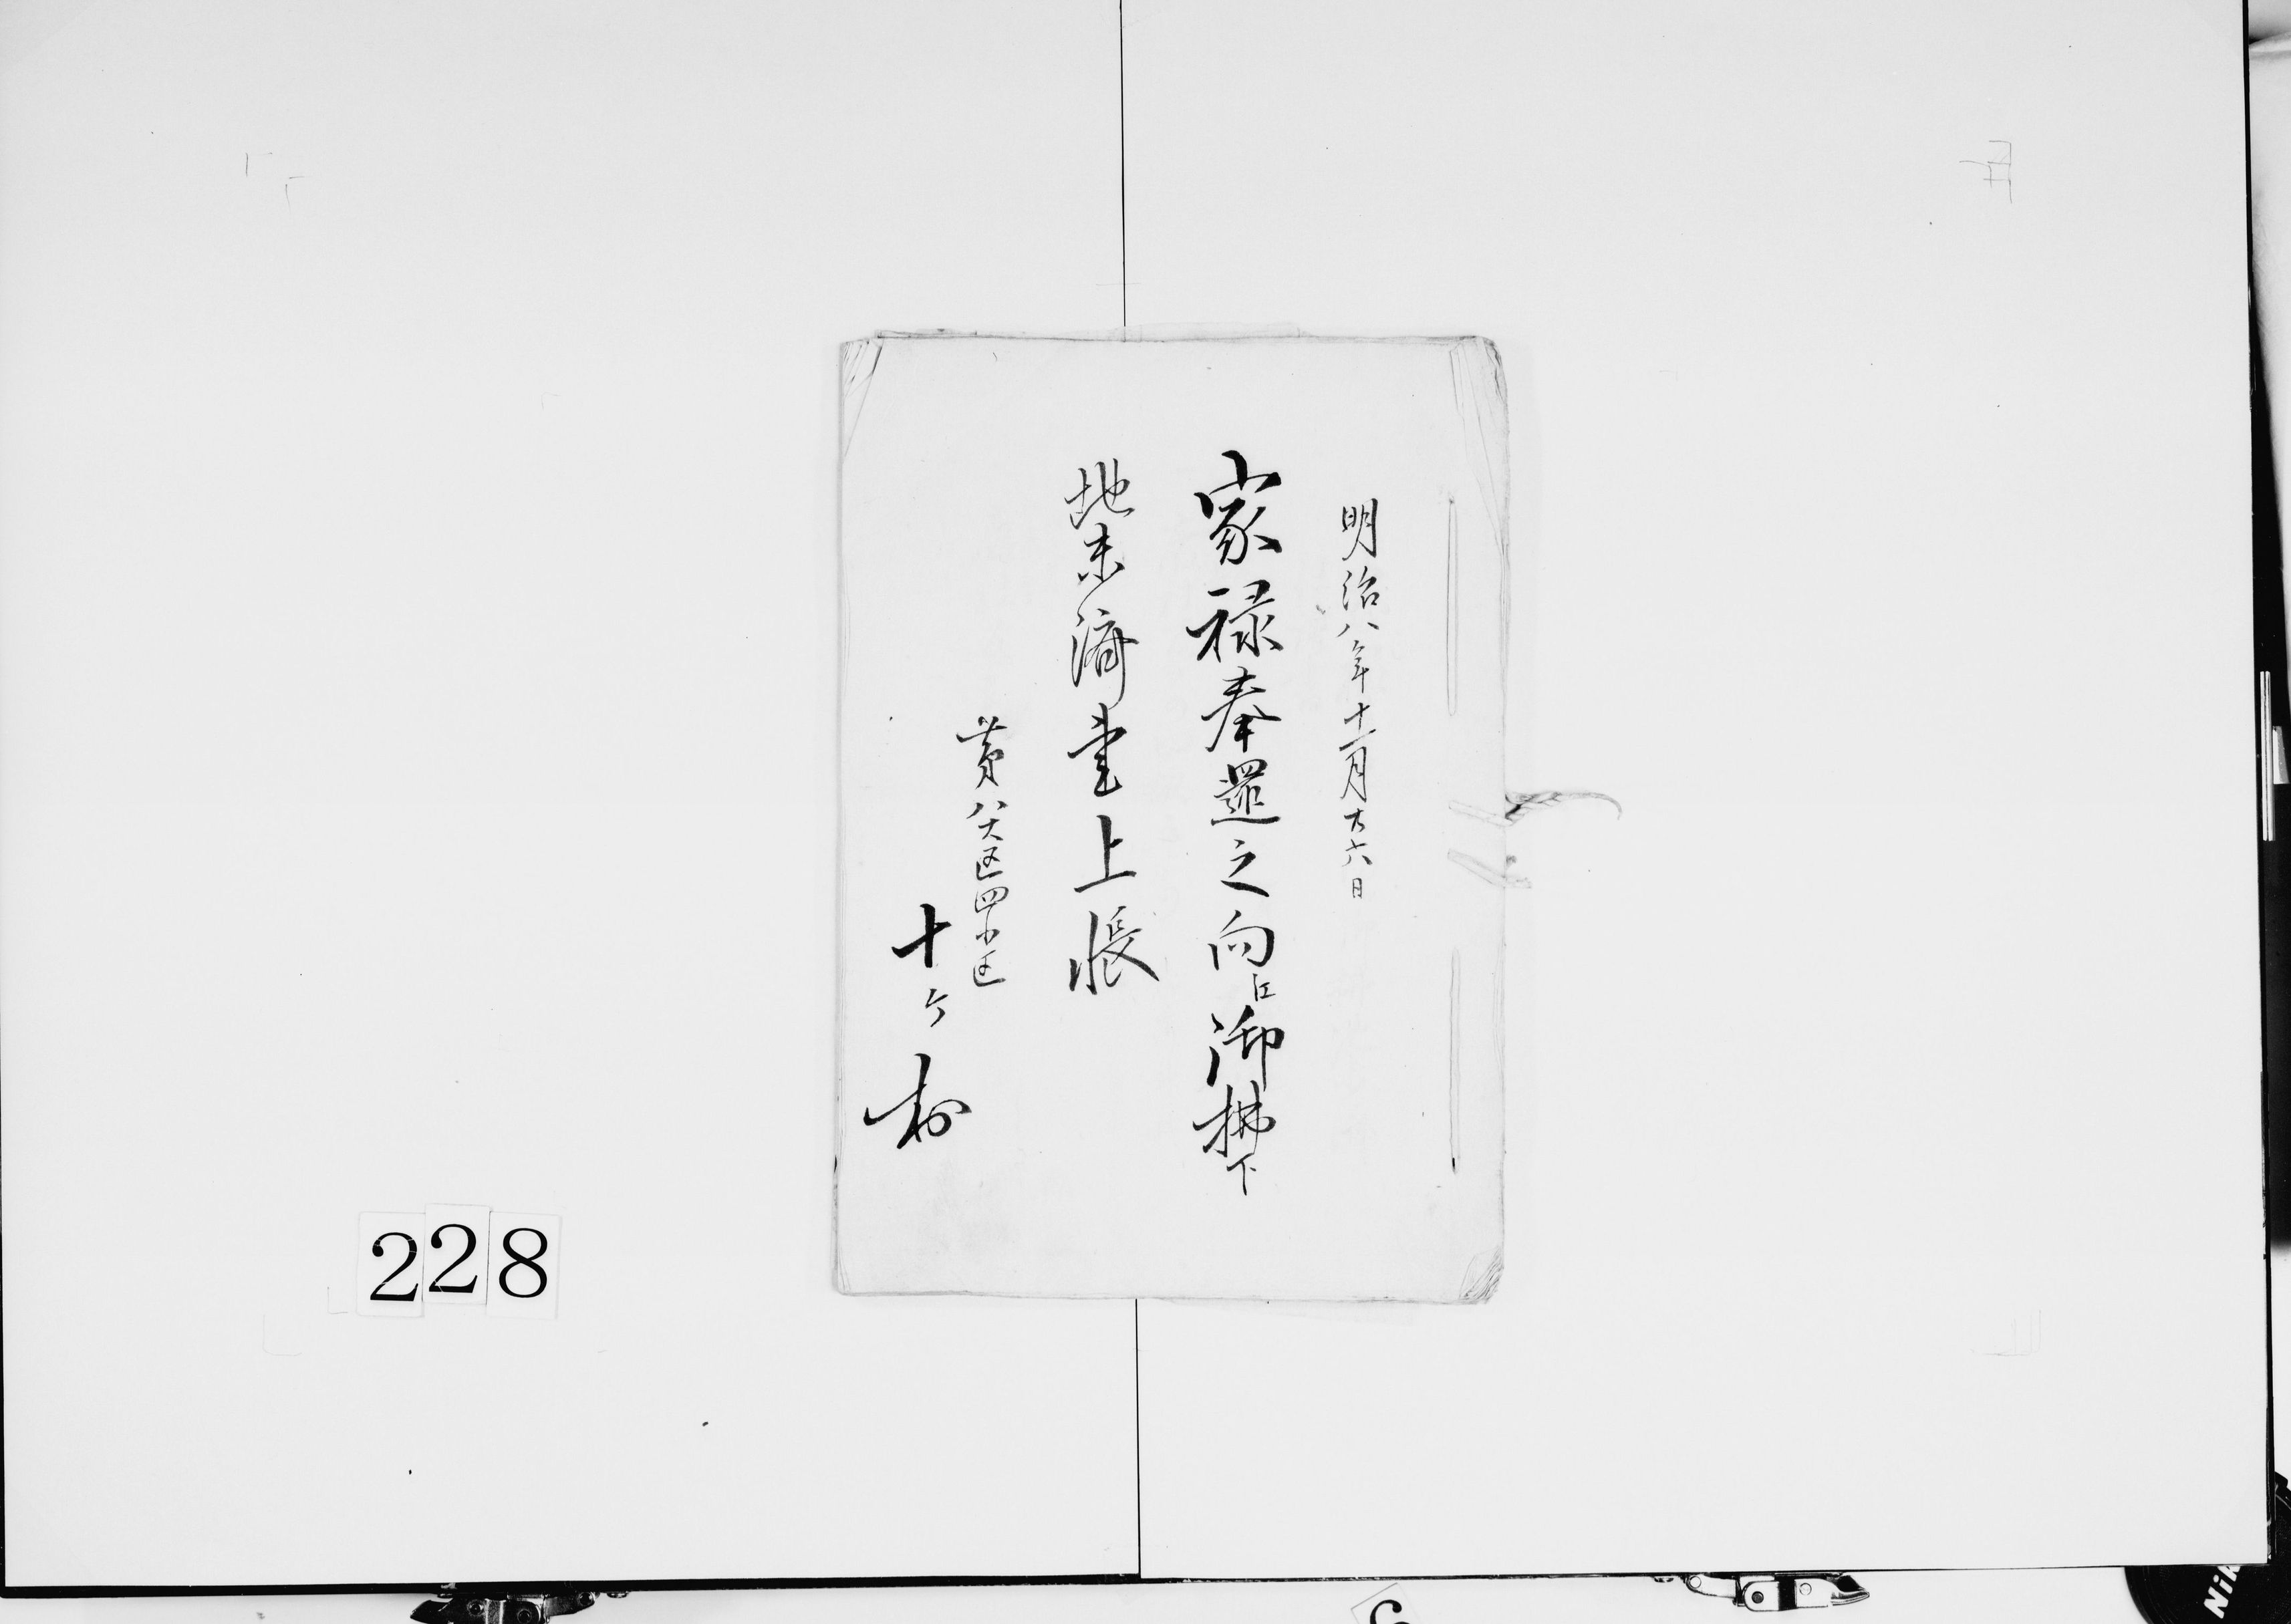 明治八年十一月廿六日
家禄奉還之向江御拂下
地未済書上帳
第八大区四小区
十ケ村
228
Nik